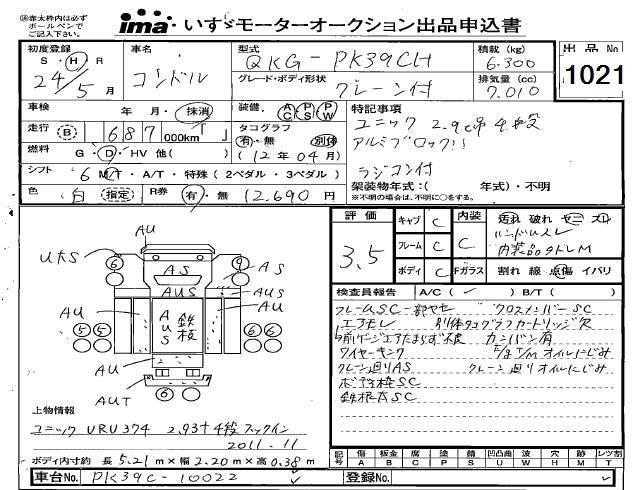 注)赤太枠内は必ず
ボールペンで
ご記入下さい。
ima いすゞモーターオークション出品申込書
出品No
1021
初度登録
S・H・R
24年5月
車名
コンドル
型式
QKG-PK39CH
積載(kg)
6.300
グレード・ボディ形状
クレーン付
排気量(cc)
7.010
車検
年 月・抹消
装備
AC PS PW
特記事項
ユニック 2.9t吊 4段
アルミブロック!!
ラジコン付
走行
B 687 000km「 」
タコグラフ
有・無 別体
(12年04月)
燃料
G・D・HV 他( )
シフト
6 MT・A/T・特殊(2ペダル・3ペダル)
架装物年式:( 年式)・不明
※不明の場合は、不明に○をする。
色
白 指定
R券
有・無 12,690円
評価
3.5
キャブ C
フレーム C
ボディ C
内装 C
Fガラス
汚れ 破れ
ハンドルスレ
内装品タドレM
割れ 線 点傷 イバリ
検査員報告
A/C( ✓ ) B/T( )
フレームSC一部ヤセ クロスメンバーSC
エアモレ 別体タコグラフカートリッジ欠
前ゲージエアたまらず不良 カンバン有
ワイヤーキンク E/g T/M オイルにじみ
クレーン廻りAS クレーン廻りオイルにじみ
ボデー枠SC
鉄板大SC
AU
U大S
6
9
AS
AS
AUS
AUS
AU
AUS
鉄板
AU
5 5
6 6
AU
AUT
6
上物情報
ユニック URU374 2.93t 4段フックイン
2011.11
ボディ内寸約 長 5.21m×幅 2.20m×高 0.38m
記号
傷 A
板金 B
腐 C
塗 P
錆 S
凹凸曲 U
波 W
穴 H
跡 M
レツ割 T
車台No.
PK39C-10022
登録No.